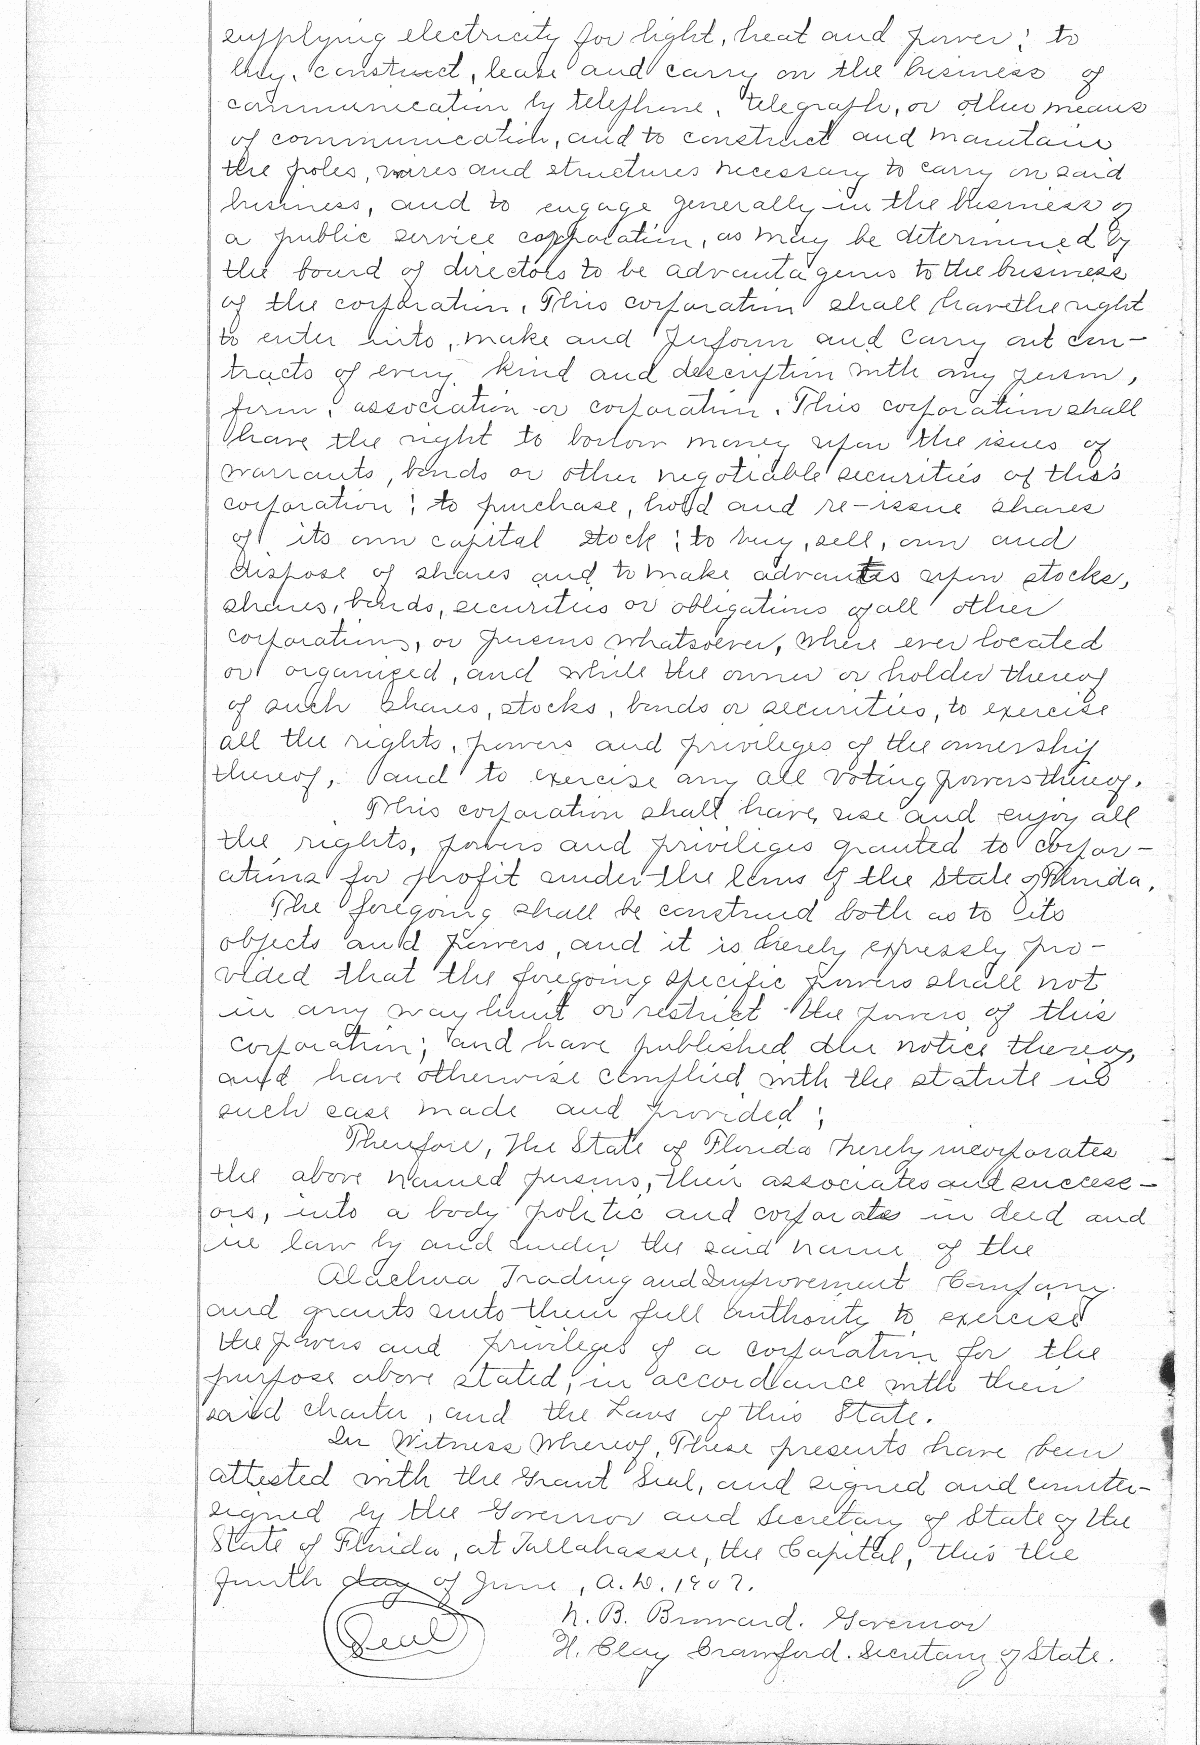 supplying electricity for light, heat and power; to
buy, construct, lease and carry on the business of
communication by telephone, telegraph, or other means
of communication, and to construct and maintain
the poles, wires and structures necessary to carry on said
business, and to engage generally in the business of
a public service corporation, as may be determined by
the board of directors to be advantageous to the business
of the corporation. This corporation shall have the right
to enter into, make and perform and carry out con-
tracts of every kind and description with any person,
firm, association or corporation. This corporation shall
have the right to borrow money upon the issues of
warrants, bonds or other negotiable securities of this
corporation; to purchase, hold and re-issue shares
of its own capital stock; to buy, sell, own and
dispose of shares and to make advances upon stocks,
shares, bonds, securities or obligations of all other
corporations, or persons whatsoever, where ever located
or organized, and while the owner or holder thereof
of such shares, stocks, bonds or securities, to exercise
all the rights, powers and privileges of the ownership
thereof, and to exercise any all voting powers thereof.
This corporation shall have, use and enjoy all
the rights, powers and privileges granted to corpor-
ations for profit under the laws of the State of Florida.
The foregoing shall be construed both as to its
objects and powers, and it is hereby expressly pro-
vided that the foregoing specific powers shall not
in any way limit or restrict the powers of this
corporation; and have published due notice thereof,
and have otherwise complied with the statute in
such case made and provided;
Therefore, the State of Florida hereby incorporates
the above named persons, their associates and success-
ors, into a body politic and corporate in deed and
in law by and under the said name of the
Alachua Trading and Improvement Company.
and grants unto them full authority to exercise
the powers and privileges of a corporation for the
purpose above stated, in accordance with their
said charter, and the Laws of this State.
In Witness Whereof, These presents have been
attested with the Grant Seal, and signed and counter-
signed by the Governor and Secretary of State of the
State of Florida, at Tallahassee, the Capital, this the
fourth day of June, A.D. 1907.
N. B. Broward. Governor
Seal
H. Clay Crawford. Secretary of State.